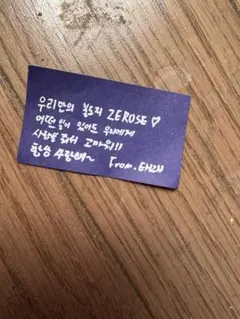 우리만의 보도자 ZEROSE ♡
어떤 일이 있어도 우리에게
사랑을 줘서 고마워!!
항상 사랑해~
From. EHZU